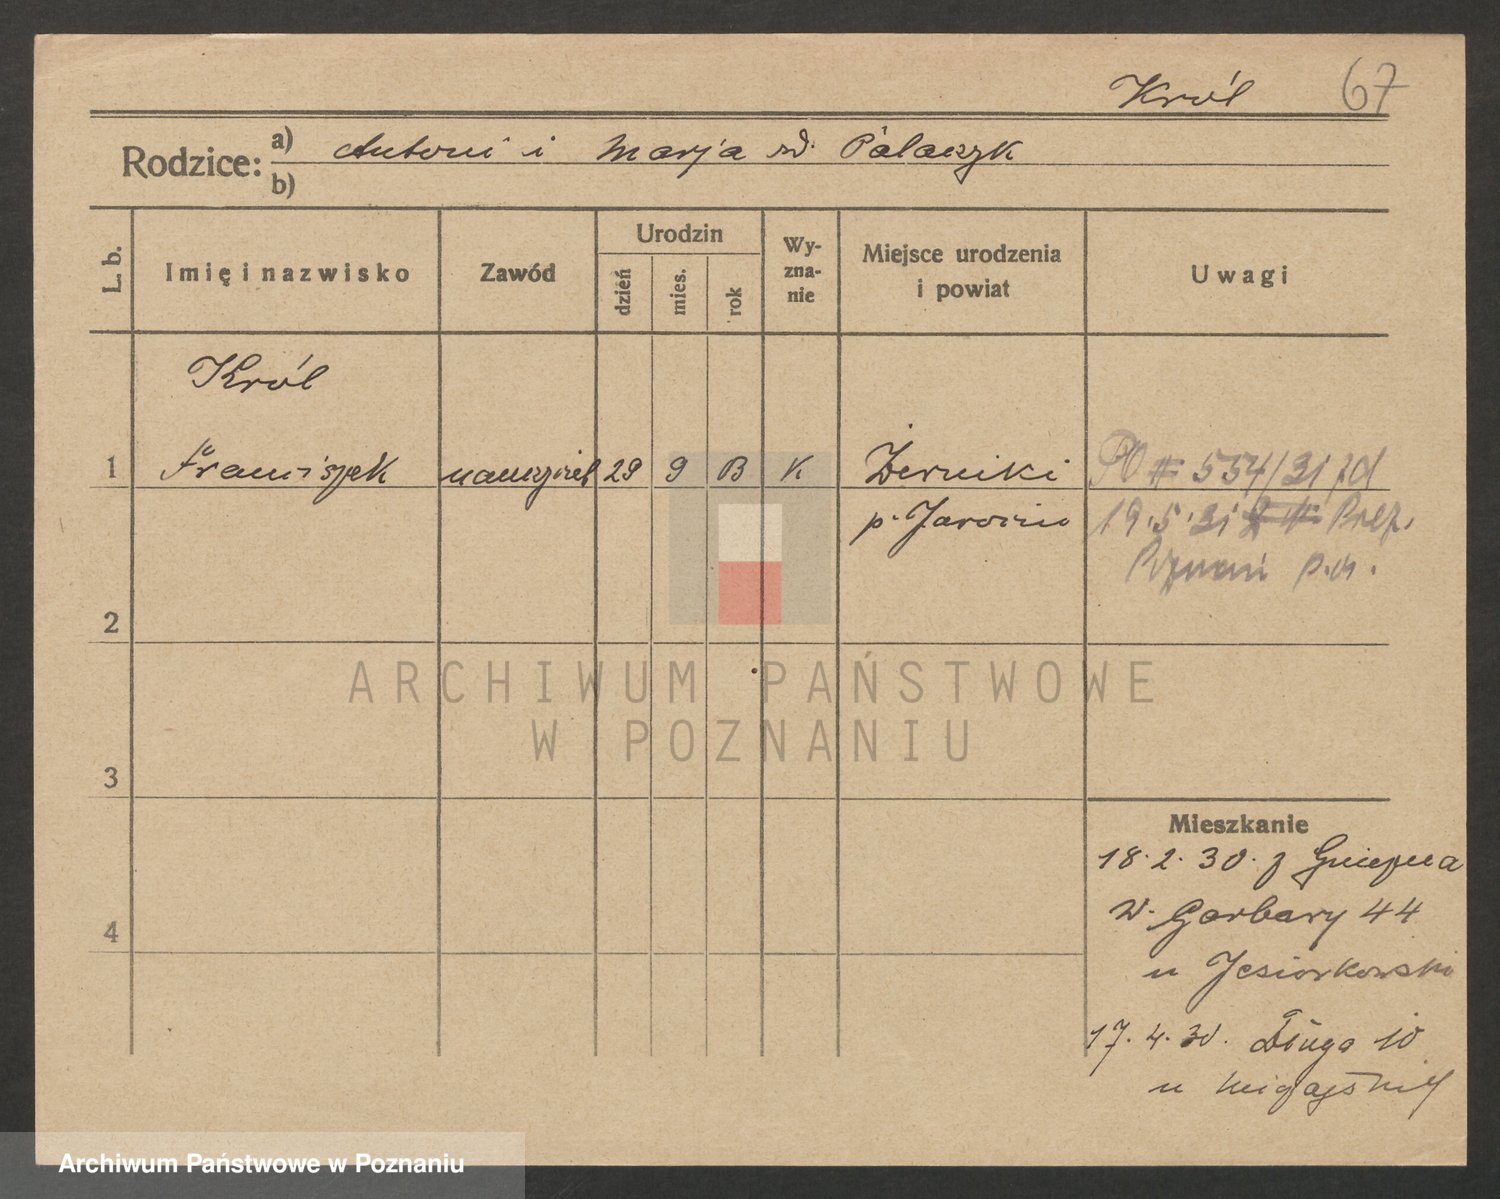 Król 67
Rodzice: a) Antoni i Marja zd. Pálaczyk
b)
L. b. Imię i nazwisko Zawód Urodzin dzień mies. rok Wy-zna-nie Miejsce urodzenia i powiat Uwagi
Król
1 Franciszek nauczyciel 29 9 13 K Żerniki
19.5.31 Prez.
p. Jarocin
Poznań
2
ARCHIWUM PAŃSTWOWE
W POZNANIU
3
Mieszkanie
18.2.30. z Gniezna
w. Garbary 44
4
u Jesiorkowski
17.4.30. Długa 10
u
Archiwum Państwowe w Poznaniu